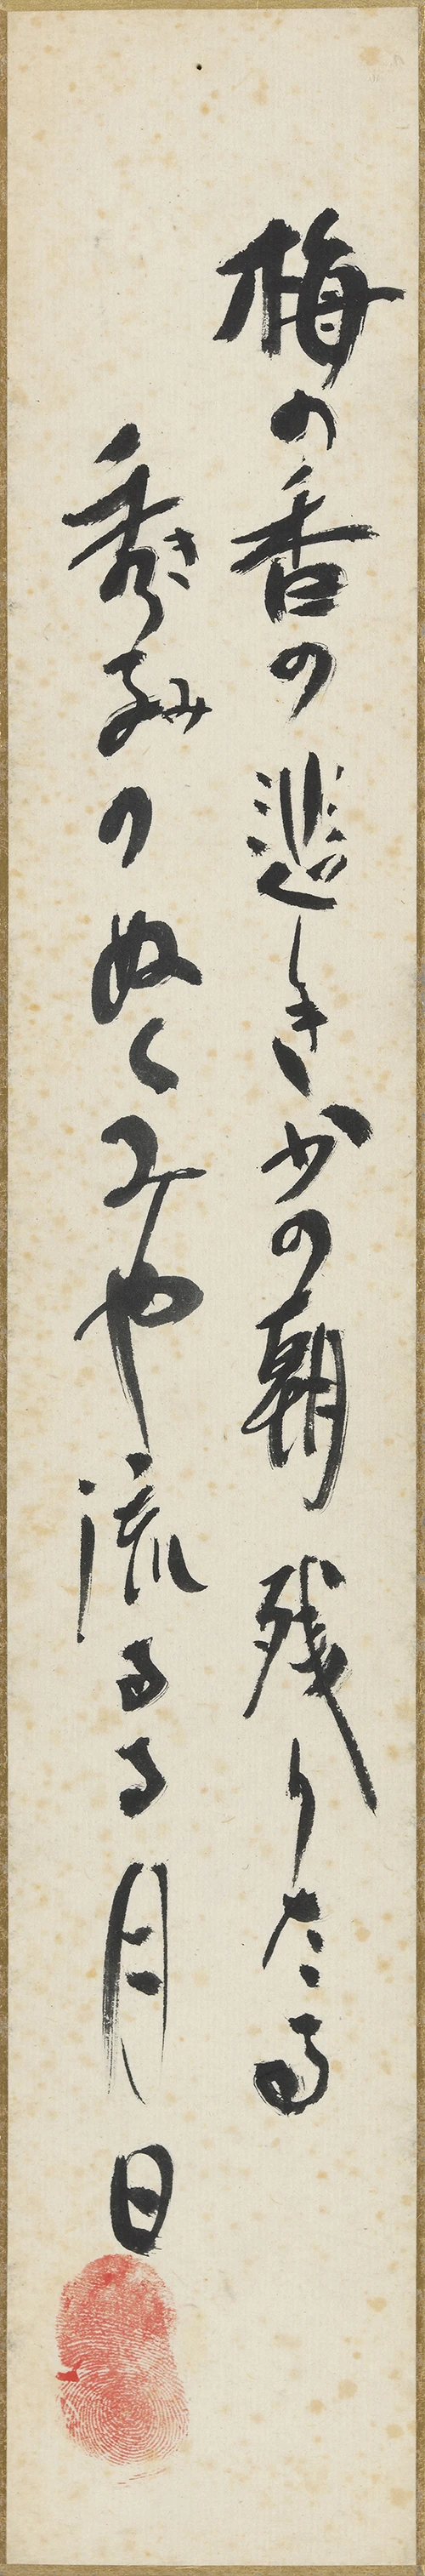 梅の香の悲しき少の朝残りたる
秀き子みのぬくみや流るる月日